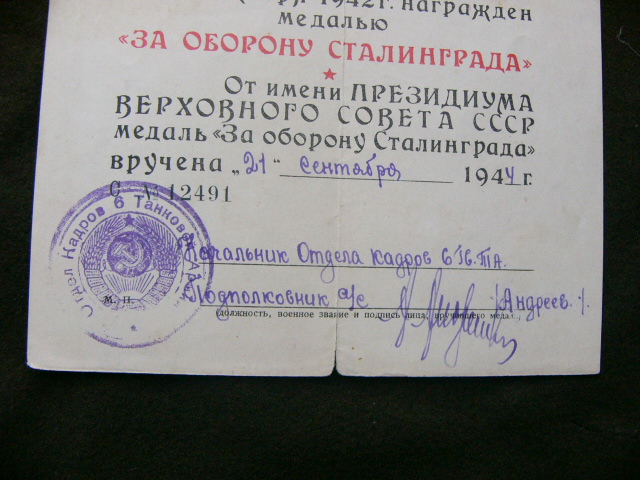 1942 г. награжден
медалью
«ЗА ОБОРОНУ СТАЛИНГРАДА»
От имени ПРЕЗИДИУМА
ВЕРХОВНОГО СОВЕТА СССР
медаль «За оборону Сталинграда»
вручена „21" сентября 1944 г.
С № 12491
Отдел Кадров 6 Танковой
Начальник Отдела кадров 6 Гв. ТА.
М. П.
Подполковник а/с /Андреев./
(должность, военное звание и подпись лица, вручившего медаль)